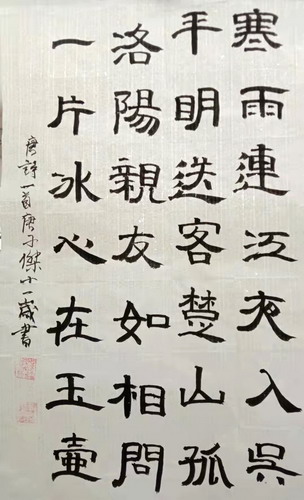 寒雨連江夜入吳
平明送客楚山孤
洛陽親友如相問
一片冰心在玉壺
唐詩一首唐子傑十一歲書